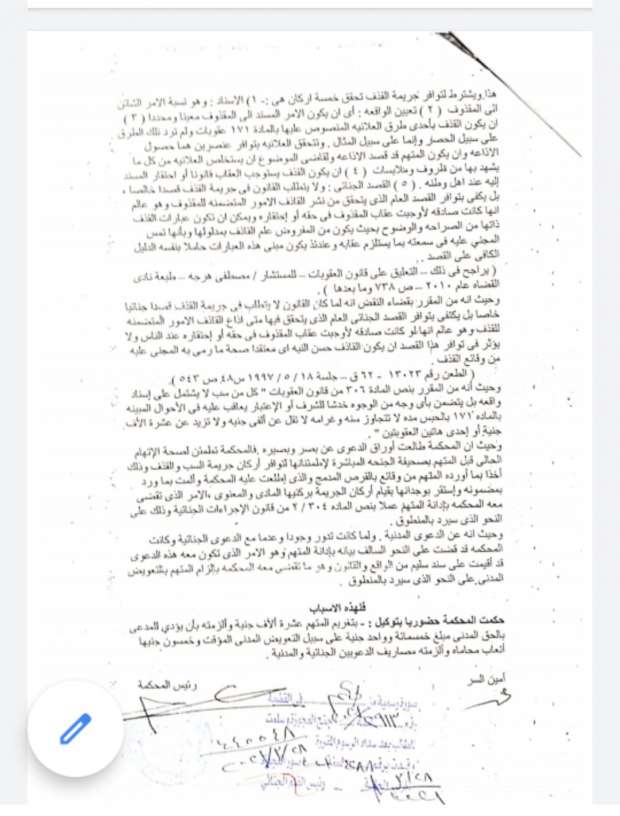 هذا ويشترط لتوافر جريمة القذف تحقق خمسة اركان هى :- ١) الاسناد : وهو نسبة الامر الشائن
الى المقذوف ( ٢ ) تعيين الواقعه : أى ان يكون الامر المسند الى المقذوف معينا ومحددا ( ٣ )
ان يكون القذف بأحدى طرق العلانيه المنصوص عليها بالمادة ١٧١ عقوبات ولم ترد تلك الطرق
على سبيل الحصر وإنما على سبيل المثال . وتتحقق العلانيه بتوافر عنصرين هما حصول
الاذاعه وان يكون المتهم قد قصد الاذاعه ولقاضى الموضوع ان يستخلص العلانيه من كل ما
يشهد بها من ظروف وملابسات ( ٤ ) ان يكون القذف يستوجب العقاب قانونا أو احتقار المسند
إليه عند اهل وطنه . ( ٥ ) القصد الجنائى : ولا يتطلب القانون فى جريمة القذف قصدا خالصا ،
بل يكفى بتوافر القصد العام الذى يتحقق من نشر القاذف الامور المتضمنه للمقذوف وهو عالم
انها كانت صادقه لأوجبت عقاب المقذوف فى حقه أو إحتقاره ويمكن ان تكون عبارات القذف
ذاتها من الصراحه والوضوح بحيث يكون من المفروض علم القاذف بمدلولها وبأنها تمس
المجني عليه فى سمعته بما يستلزم عقابه وعندئذ يكون مبنى هذه العبارات حاملا بنفسه الدليل
الكافى على القصد ..
( يراجع فى ذلك – التعليق على قانون العقوبات – للمستشار / مصطفى هرجه – طبعة نادى
القضاه عام ٢٠١٠ – ص ٧٣٨ وما بعدها ) .
وحيث انه من المقرر بقضاء النقض انه لما كان القانون لا يتطلب فى جريمة القذف قصدا جنائيا
خاصا بل يكتفى بتوافر القصد الجنائى العام الذى يتحقق فيها متى اذاع القاذف الامور المتضمنه
للقذف وهو عالم انها لو كانت صادقه لأوجبت عقاب المقذوف فى حقه أو إحتقاره عند الناس ولا
يؤثر فى توافر هذا القصد ان يكون القاذف حسن النيه اى معتقدا صحة ما رمى به المجنى عليه
من وقائع القذف .
( الطعن رقم ١٣٠٢٣ - ٦٢ ق – جلسة ١٨ / ٥ / ١٩٩٧ س٤٨ ص ٥٤٣ ).
وحيث أنه من المقرر بنص المادة ٣٠٦ من قانون العقوبات " كل من سب لا يشتمل على إسناد
واقعه بل يتضمن بأى وجه من الوجوه خدشا للشرف أو الإعتبار يعاقب عليه فى الأحوال المبينه
بالماده ١٧١ بالحبس مده لا تتجاوز سنه وغرامه لا تقل عن ألفى جنيه ولا تزيد عن عشرة الأف
جنية أو إحدى هاتين العقوبتين " .
وحيث ان المحكمة طالعت أوراق الدعوى عن بصر وبصيره .فالمحكمة تطمئن لصحة الإتهام
الحالى قبل المتهم بصحيفة الجنحه المباشرة لإطمئنانها لتوافر أركان جريمة السب والقذف وذلك
أخذا بما أورده المتهم من وقائع بالقرص المدمج والذى إطلعت عليه المحكمة وألمت بما ورد
بمضمونه وإستقر بوجدانها بقيام أركان الجريمة بركنيها المادى والمعنوى ،الامر الذى تقضى
معه المحكمه بإدانة المتهم عملا بنص الماده ٣٠٤ / ٢ من قانون الإجراءات الجنائية وذلك على
النحو الذى سيرد بالمنطوق .
وحيث انه عن الدعوى المدنية . ولما كانت تدور وجودا وعدما مع الدعوى الجنائية وكانت
المحكمه قد قضت على النحو السالف بيانه بإدانة المتهم وهو الامر الذى تكون معه هذه الدعوى
قد أقيمت على سند سليم من الواقع والقانون وهو ما تقضى معه المحكمه بإلزام المتهم بالتعويض
المدنى على النحو الذى سيرد بالمنطوق .
فلهذه الاسباب
حكمت المحكمة حضوريا بتوكيل : - بتغريم المتهم عشرة ألاف جنية وألزمته بأن يؤدي للمدعى
بالحق المدنى مبلغ خمسمائة وواحد جنية على سبيل التعويض المدنى المؤقت وخمسون جنيها
أتعاب محاماه وألزمته مصاريف الدعويين الجنائية والمدنية .
أمين السر
رئيس المحكمة